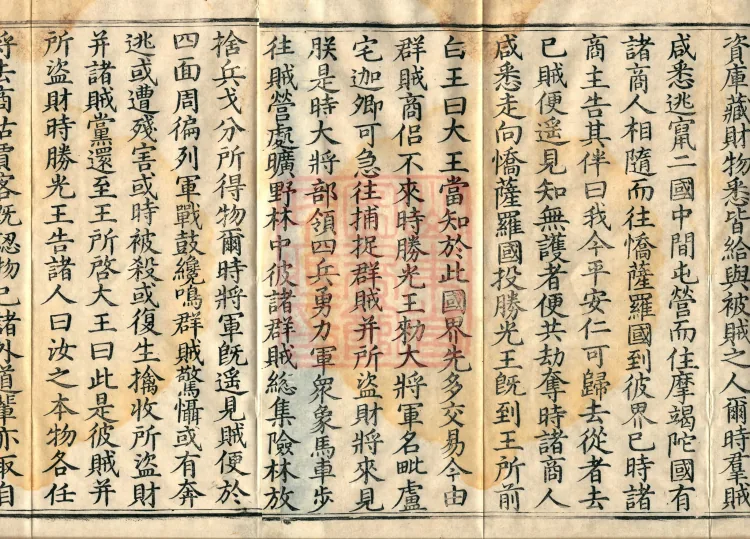 資庫藏財物悉皆給與被賊之人爾時羣賊
咸悉逃竄二國中間屯營而住摩竭陀國有
諸商人相隨而往憍薩羅國到彼界已時諸
商主告其伴曰我今平安仁可歸去從者去
已賊便遥見知無護者便共劫奪時諸商人
咸悉走向憍薩羅國投勝光王旣到王所前
白王曰大王當知於此國界先多交易今由
群賊商侶不來時勝光王勑大將軍名毗盧
宅迦卿可急往捕捉群賊并所盜財將來見
朕是時大將部領四兵勇力軍衆象馬車步
往賊營處曠野林中彼諸群賊総集險林放
捨兵戈分所得物爾時將軍旣遥見賊便於
四面周徧列軍戰鼓纔鳴群賊驚懾或有奔
逃或遭殘害或時被殺或復生擒收所盜財
并諸賊黨還至王所啓大王曰此是彼賊并
所盜財時勝光王告諸人曰汝之本物各任
將去商估賈客旣認物已諸外道輩亦取自